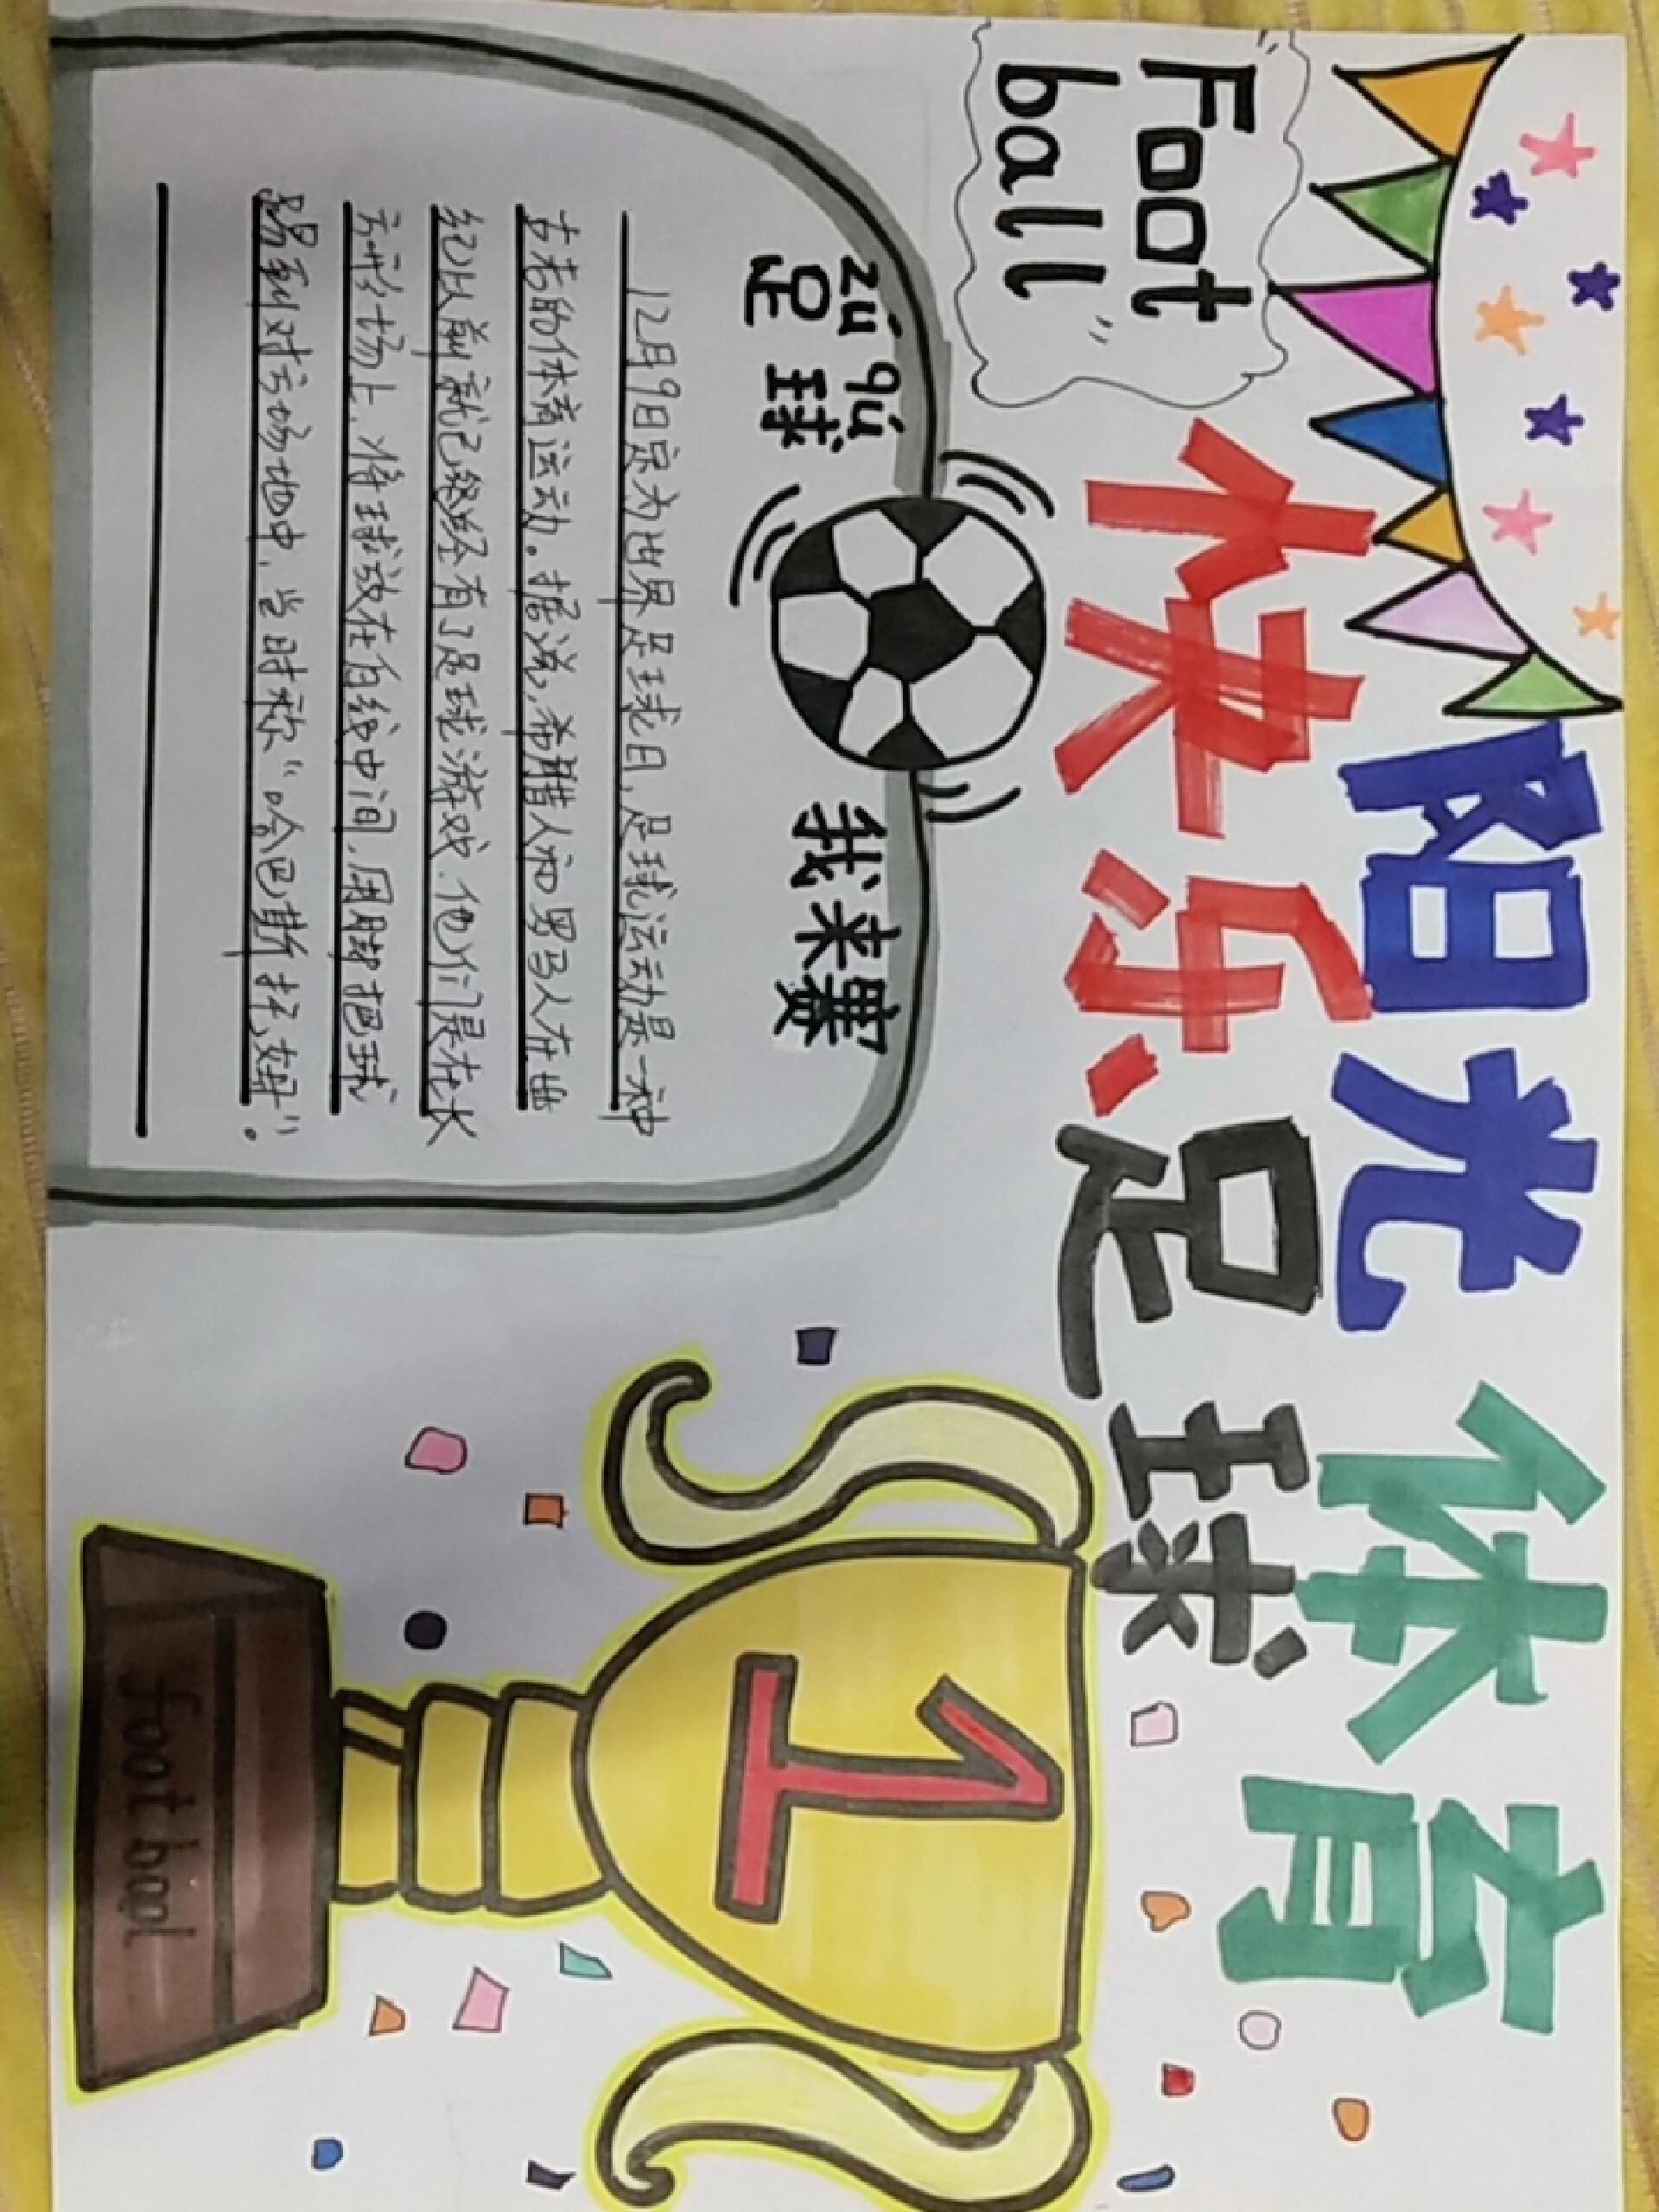 阳光体育
Foot
ball
快乐足球
zú qú
足球 我来赛
12月9日定为世界足球日,足球运动是一种
古老的体育运动。据说,希腊人和罗马人在世
纪以前就已经经有了足球游戏.他们是在长
方形场上,将球放在白线中间,用脚把球
踢到对方场地中,当时称“哈巴斯托姆”。
1
foot ball